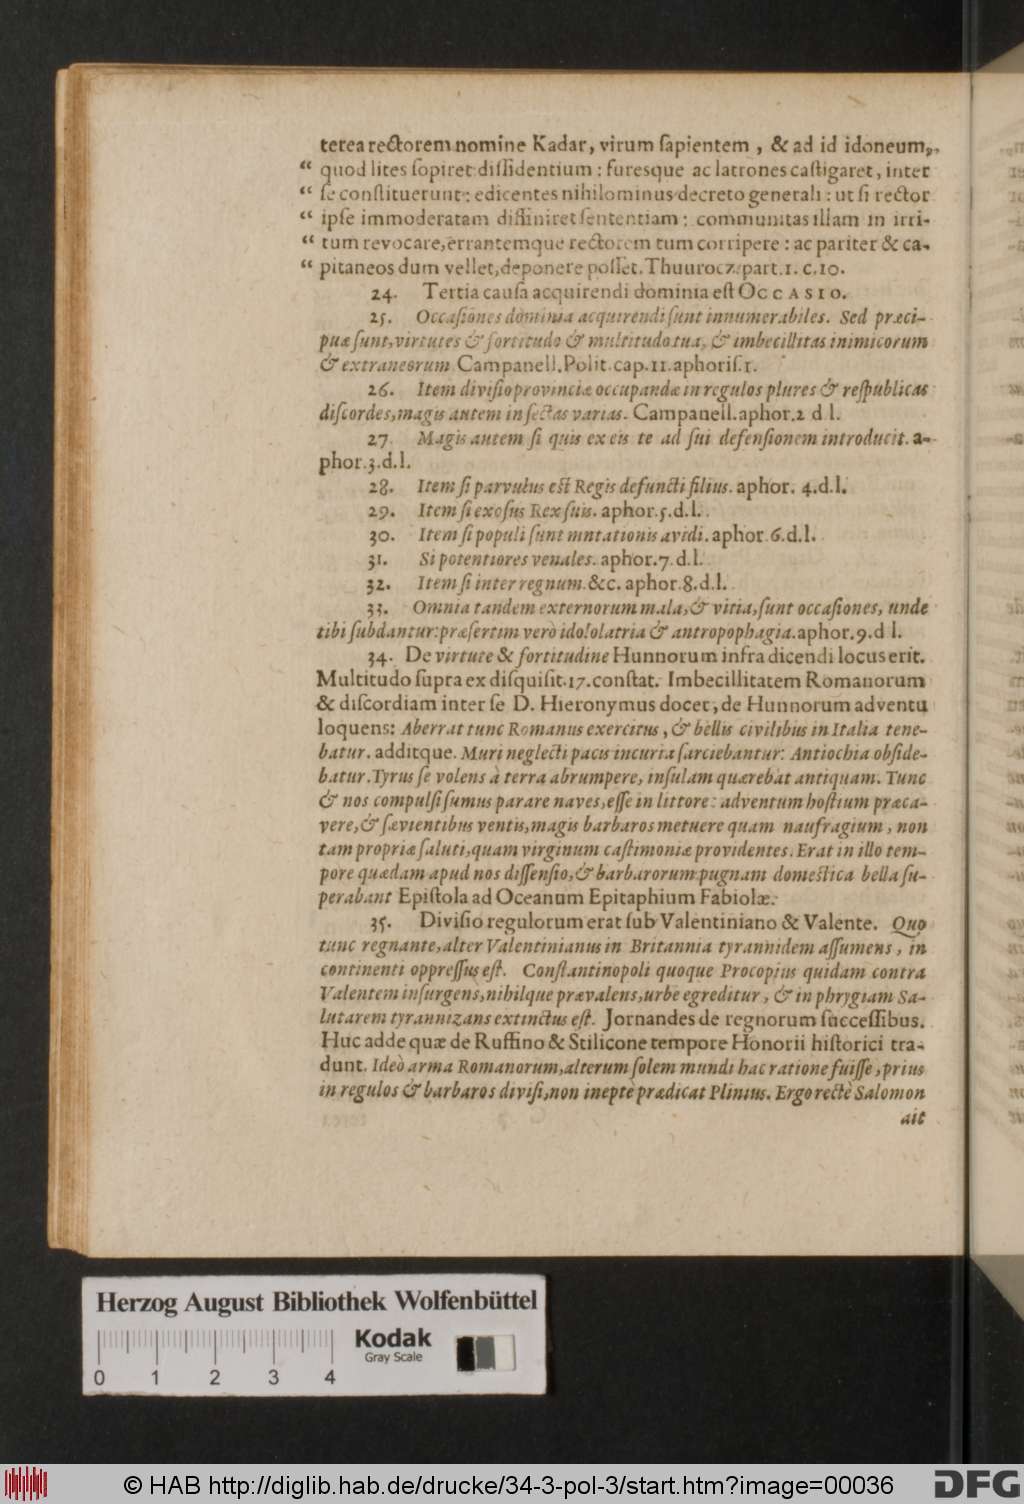 terea rectorem nomine Kadar, virum ſapientem, & ad id idoneum,,,
“ quod lites ſopiret diſſidentium : fureſque ac latrones caſtigaret, inter
“ ſe conſtituerunt : edicentes nihilominus decreto generali : ut ſi rector
“ ipſe immoderatam diffiniret ſententiam : communitas illam in irri-
“ tum revocare, errantemque rectorem tum corripere : ac pariter & ca-
“ pitaneos dum vellet, deponere poſſet. Thuurocz. part. 1. c. 10.
24. Tertia cauſa acquirendi dominia eſt OCCASIO.
25. Occaſiones dominia acquirendi ſunt innumerabiles. Sed præci-
puæ ſunt, virtutes & fortitudo & multitudo tua, & imbecillitas inimicorum
& extraneorum Campanell. Polit. cap. 11. aphoriſ. 1.
26. Item diviſio provinciæ occupandæ in regulos plures & reſpublicas
diſcordes, magis autem in ſectas varias. Campanell. aphor. 2 d l.
27. Magis autem ſi quis ex eis te ad ſui defenſionem introducit. a-
phor. 3. d. l.
28. Item ſi parvulus eſt Regis defuncti filius. aphor. 4. d. l.
29. Item ſi exoſus Rex ſuis. aphor. 5. d. l.
30. Item ſi populi ſunt mntationis avidi. aphor. 6. d. l.
31. Si potentiores venales. aphor. 7. d. l.
32. Item ſi inter regnum. &c. aphor. 8. d. l.
33. Omnia tandem externorum mala, & vitia, ſunt occaſiones, unde
tibi ſubdantur: præſertim verò idololatria & antropophagia. aphor. 9. d l.
34. De virtute & fortitudine Hunnorum infra dicendi locus erit.
Multitudo ſupra ex diſquiſit. 17. conſtat. Imbecillitatem Romanorum
& diſcordiam inter ſe D. Hieronymus docet, de Hunnorum adventu
loquens: Aberrat tunc Romanus exercitus, & bellis civilibus in Italia tene-
batur. additque. Muri neglecti pacis incuria ſarciebantur: Antiochia obſide-
batur. Tyrus ſe volens à terra abrumpere, inſulam quærebat antiquam. Tunc
& nos compulſi ſumus parare naves, eſſe in littore: adventum hoſtium præca-
vere, & ſævientibus ventis, magis barbaros metuere quam naufragium, non
tam propriæ ſaluti, quam virginum caſtimoniæ providentes. Erat in illo tem-
pore quædam apud nos diſſenſio, & barbarorum pugnam domeſtica bella ſu-
perabant Epiſtola ad Oceanum Epitaphium Fabiolæ.
35. Diviſio regulorum erat ſub Valentiniano & Valente. Quo
tunc regnante, alter Valentinianus in Britannia tyrannidem aſſumens, in
continenti oppreſſus eſt. Conſtantinopoli quoque Procopius quidam contra
Valentem inſurgens, nihilque prævalens, urbe egreditur, & in phrygiam Sa-
lutarem tyrannizans extinctus eſt. Jornandes de regnorum ſucceſſibus.
Huc adde quæ de Ruffino & Stilicone tempore Honorii hiſtorici tra-
dunt. Ideò arma Romanorum, alterum ſolem mundi hac ratione fuiſſe, prius
in regulos & barbaros diviſi, non ineptè prædicat Plinius. Ergo rectè Salomon
ait
Herzog August Bibliothek Wolfenbüttel
Kodak
Gray Scale
0 1 2 3 4
© HAB http://diglib.hab.de/drucke/34-3-pol-3/start.htm?image=00036
DFG